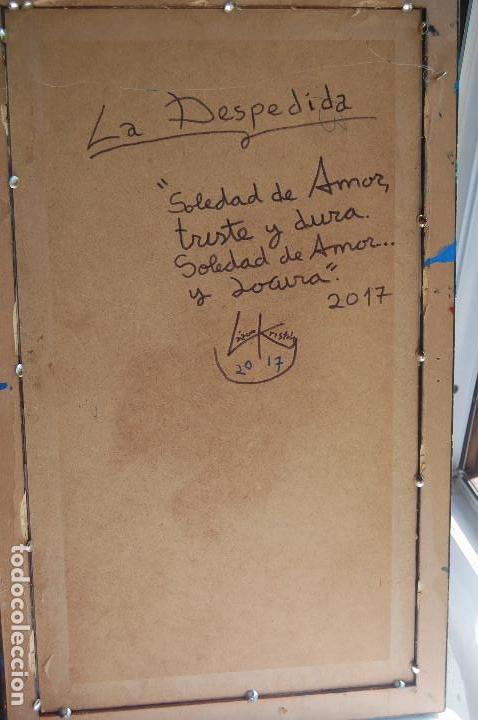 La Despedida
"Soledad de Amor,
triste y dura.
Soledad de Amor..
y Locura".
2017
2017
todocoleccion.net